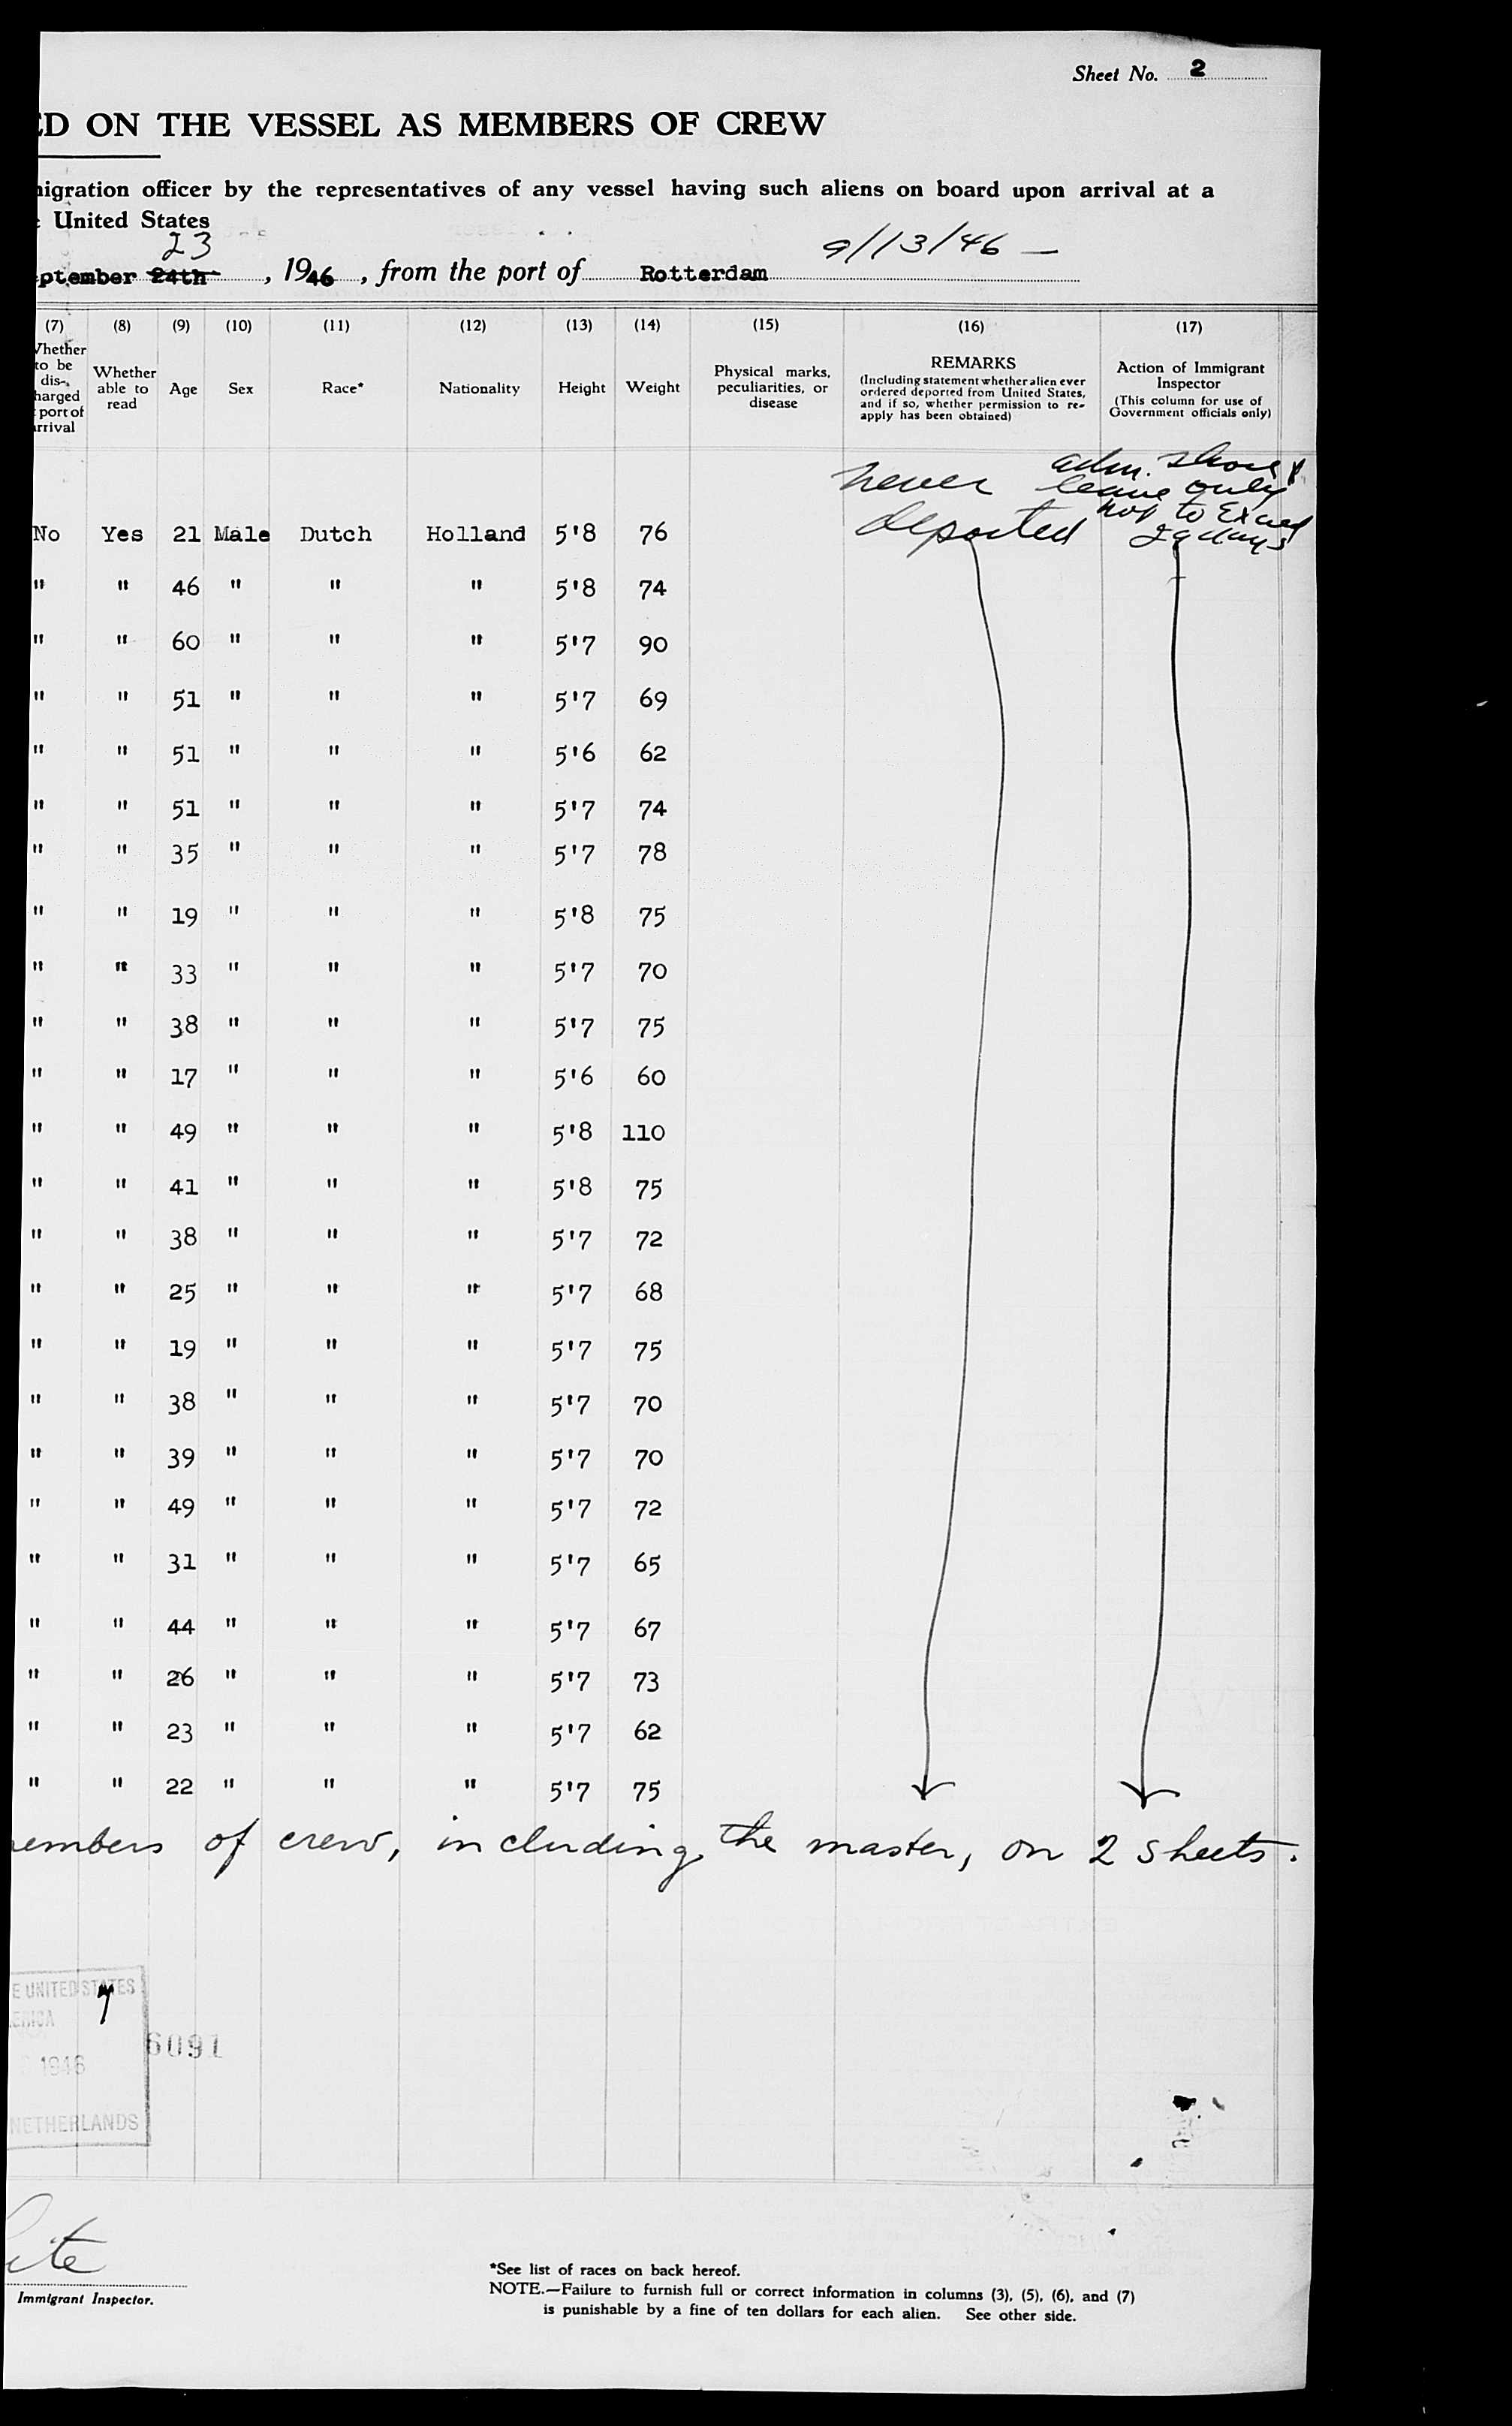 Sheet No. 2
ED ON THE VESSEL AS MEMBERS OF CREW
igration officer by the representatives of any vessel having such aliens on board upon arrival at a
United States
23
9/13/46 —
ptember 24th , 1946 , from the port of Rotterdam
(7) (8) (9) (10) (11) (12) (13) (14) (15) (16) (17)
Whether to be dis- harged port of arrival
Whether able to read
Age
Sex
Race*
Nationality
Height
Weight
Physical marks, peculiarities, or disease
REMARKS
(Including statement whether alien ever ordered deported from United States, and if so, whether permission to re- apply has been obtained)
Action of Immigrant Inspector
(This column for use of Government officials only)
never deported
adm. shore leave only not to Exceed 29 days
No Yes 21 Male Dutch Holland 5'8 76
" " 46 " " " 5'8 74
" " 60 " " " 5'7 90
" " 51 " " " 5'7 69
" " 51 " " " 5'6 62
" " 51 " " " 5'7 74
" " 35 " " " 5'7 78
" " 19 " " " 5'8 75
" " 33 " " " 5'7 70
" " 38 " " " 5'7 75
" " 17 " " " 5'6 60
" " 49 " " " 5'8 110
" " 41 " " " 5'8 75
" " 38 " " " 5'7 72
" " 25 " " " 5'7 68
" " 19 " " " 5'7 75
" " 38 " " " 5'7 70
" " 39 " " " 5'7 70
" " 49 " " " 5'7 72
" " 31 " " " 5'7 65
" " 44 " " " 5'7 67
" " 26 " " " 5'7 73
" " 23 " " " 5'7 62
" " 22 " " " 5'7 75
embers of crew, including the master, on 2 sheets.
E UNITED STATES
ERICA
6091
1946
NETHERLANDS
Immigrant Inspector.
*See list of races on back hereof.
NOTE.—Failure to furnish full or correct information in columns (3), (5), (6), and (7)
is punishable by a fine of ten dollars for each alien. See other side.